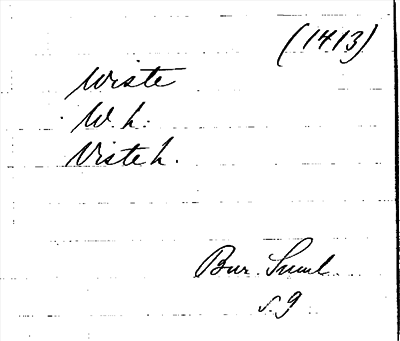 (1413)
Wiste
W. h.
Viste h.
Bur. Suml.
s. 9